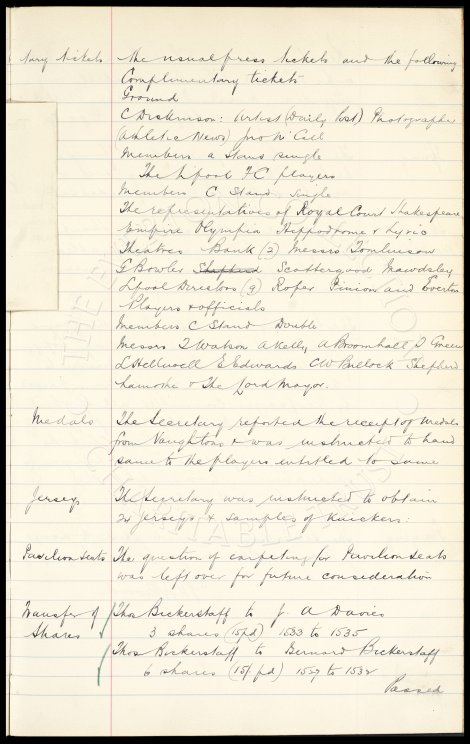 tary tickets the usual press tickets and the following
Complimentary tickets
Ground
C Dickinson: Artist (Daily Post) Photographer
(Athletic News)
Members A Stand single
The L'pool FC players
Members C Stand single
The representatives of Royal Court Shakespeare
Empire Olympia Hippodrome & Lyric
Theatres Bank (2) Messrs Tomlinson
G Bowler Shepherd Scattergood Mawdsley
L'pool Directors (9) Roper Pinion and Everton
Players & officials
Members C Stand Double
Messrs T Watson A Kelly, A Broomhall T Green
L Helliwell E Edwards CW Bullock Shepherd
Lamothe & The Lord Mayor.
Medals The Secretary reported the receipt of medals
from Vaughtons & was instructed to hand
same to the players entitled to same
Jerseys The Secretary was instructed to obtain
24 Jerseys & samples of knickers:
Pavilion Seats The question of carpeting for Pavilion Seats
was left over for future consideration
Transfer of Thos Bickerstaff to J. A Davies
Shares 3 shares (15/ pd) 1533 to 1535
Thos Bickerstaff to Bernard Bickerstaff
6 shares (15/ pd) 1527 to 1532
Passed